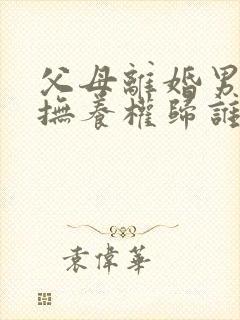 父母離婚男
撫養權歸誰
袁偉華